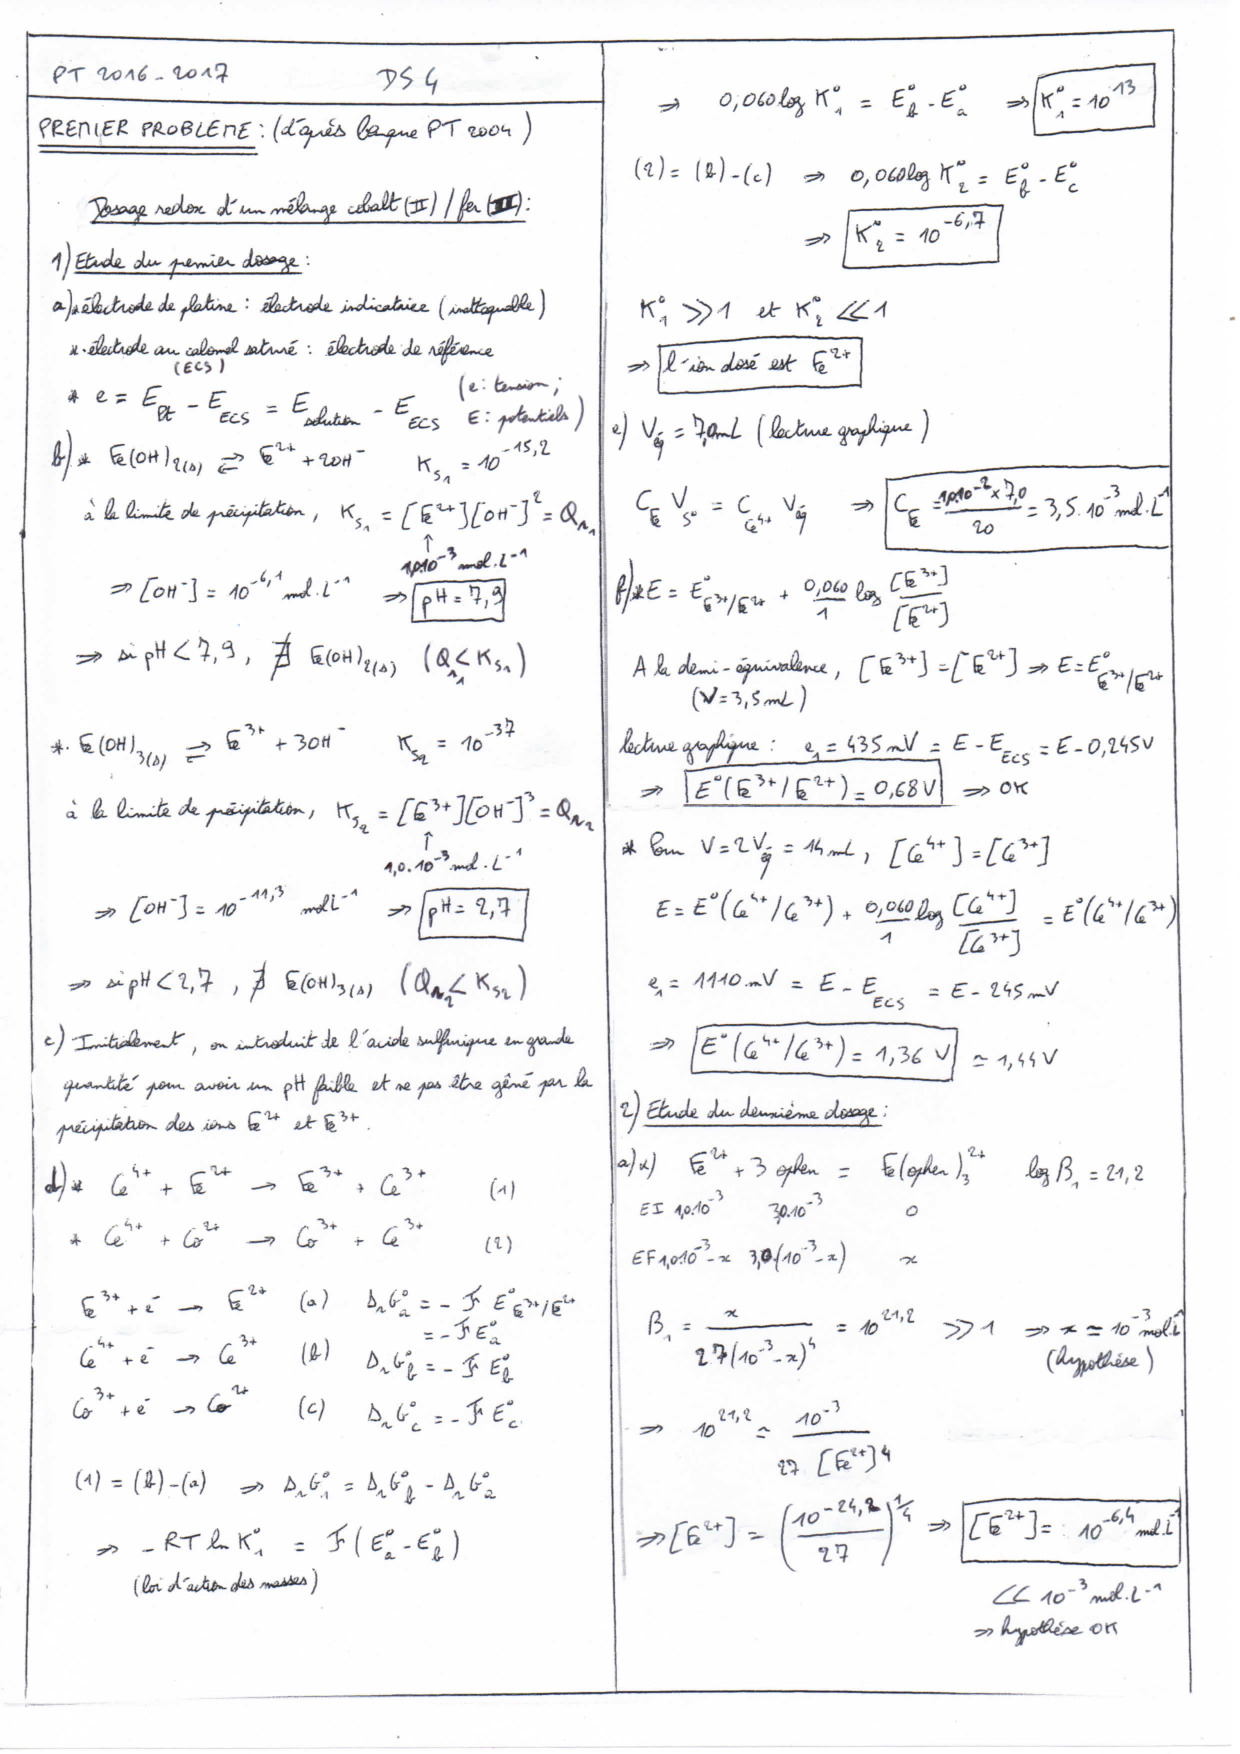 PT 2016-2017 DS 4
PREMIER PROBLEME : (d'après banque PT 2004)
Dosage redox d'un mélange cobalt (II) / fer (II) :
1) Etude du premier dosage :
a) * électrode de platine : électrode indicatrice (inattaquable)
* électrode au calomel saturé : électrode de référence
(ECS)
* e = E_Pt - E_ECS = E_solution - E_ECS (e : tension ; E : potentiels)
b) * Fe(OH)₂(s) ⇌ Fe²⁺ + 2OH⁻ K_s₁ = 10^-15,2
à la limite de précipitation, K_s₁ = [Fe²⁺][OH⁻]² = Q_r₁
↑
1,0.10⁻³ mol.L⁻¹
⇒ [OH⁻] = 10^-6,1 mol.L⁻¹ ⇒ pH = 7,9
⇒ si pH < 7,9, ∄ Fe(OH)₂(s) (Q_r₁ < K_s₁)
* Fe(OH)₃(s) ⇌ Fe³⁺ + 3OH⁻ K_s₂ = 10^-37
à la limite de précipitation, K_s₂ = [Fe³⁺][OH⁻]³ = Q_r₂
↑
1,0.10⁻³ mol.L⁻¹
⇒ [OH⁻] = 10^-11,3 mol L⁻¹ ⇒ pH = 2,7
⇒ si pH < 2,7, ∄ Fe(OH)₃(s) (Q_r₂ < K_s₂)
c) Initialement, on introduit de l'acide sulfurique en grande
quantité pour avoir un pH faible et ne pas être gêné par la
précipitation des ions Fe²⁺ et Fe³⁺.
d) * Ce⁴⁺ + Fe²⁺ → Fe³⁺ + Ce³⁺ (1)
* Ce⁴⁺ + Co²⁺ → Co³⁺ + Ce³⁺ (2)
Fe³⁺ + e⁻ → Fe²⁺ (a) Δ_rG°_a = - F E°_Fe³⁺/Fe²⁺
= - F E°_a
Ce⁴⁺ + e⁻ → Ce³⁺ (b) Δ_rG°_b = - F E°_b
Co³⁺ + e⁻ → Co²⁺ (c) Δ_rG°_c = - F E°_c
(1) = (b) - (a) ⇒ Δ_rG°₁ = Δ_rG°_b - Δ_rG°_a
⇒ - RT ln K°₁ = F (E°_a - E°_b)
(loi d'action des masses)
⇒ 0,060 log K°₁ = E°_b - E°_a ⇒ K°₁ = 10^13
(2) = (b) - (c) ⇒ 0,060 log K°₂ = E°_b - E°_c
⇒ K°₂ = 10^-6,7
K°₁ ≫ 1 et K°₂ ≪ 1
⇒ l'ion dosé est Fe²⁺
e) V_éq = 7,0 mL (lecture graphique)
C_Fe V_s° = C_Ce⁴⁺ V_éq ⇒ C_Fe = 1,0.10⁻² × 7,0 / 20 = 3,5.10⁻³ mol.L⁻¹
f) * E = E°_Fe³⁺/Fe²⁺ + 0,060/1 log [Fe³⁺]/[Fe²⁺]
A la demi-équivalence, [Fe³⁺] = [Fe²⁺] ⇒ E = E°_Fe³⁺/Fe²⁺
(V = 3,5 mL)
lecture graphique : e₁ = 435 mV = E - E_ECS = E - 0,245 V
⇒ E°(Fe³⁺/Fe²⁺) = 0,68 V ⇒ OK
* Pour V = 2 V_éq = 14 mL, [Ce⁴⁺] = [Ce³⁺]
E = E°(Ce⁴⁺/Ce³⁺) + 0,060/1 log [Ce⁴⁺]/[Ce³⁺] = E°(Ce⁴⁺/Ce³⁺)
e₁ = 1110 mV = E - E_ECS = E - 245 mV
⇒ E°(Ce⁴⁺/Ce³⁺) = 1,36 V ≃ 1,44 V
2) Etude du deuxième dosage :
a) α) Fe²⁺ + 3 ophen = Fe(ophen)₃²⁺ log β₁ = 21,2
EI 1,0.10⁻³ 3,0.10⁻³ 0
EF 1,0.10⁻³ - x 3,0(10⁻³ - x) x
β₁ = x / 27(10⁻³ - x)⁴ = 10^21,2 ≫ 1 ⇒ x ≃ 10⁻³ mol.L⁻¹
(hypothèse)
⇒ 10^21,2 ≃ 10⁻³ / 27 [Fe²⁺]⁴
⇒ [Fe²⁺] = (10^-24,2 / 27)^1/4 ⇒ [Fe²⁺] = 10^-6,4 mol.L⁻¹
≪ 10⁻³ mol.L⁻¹
⇒ hypothèse OK